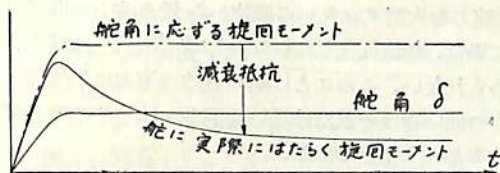 舵角に応ずる旋回モーメント
減衰抵抗
舵角 δ
舵に実際にはたらく旋回モーメント
t